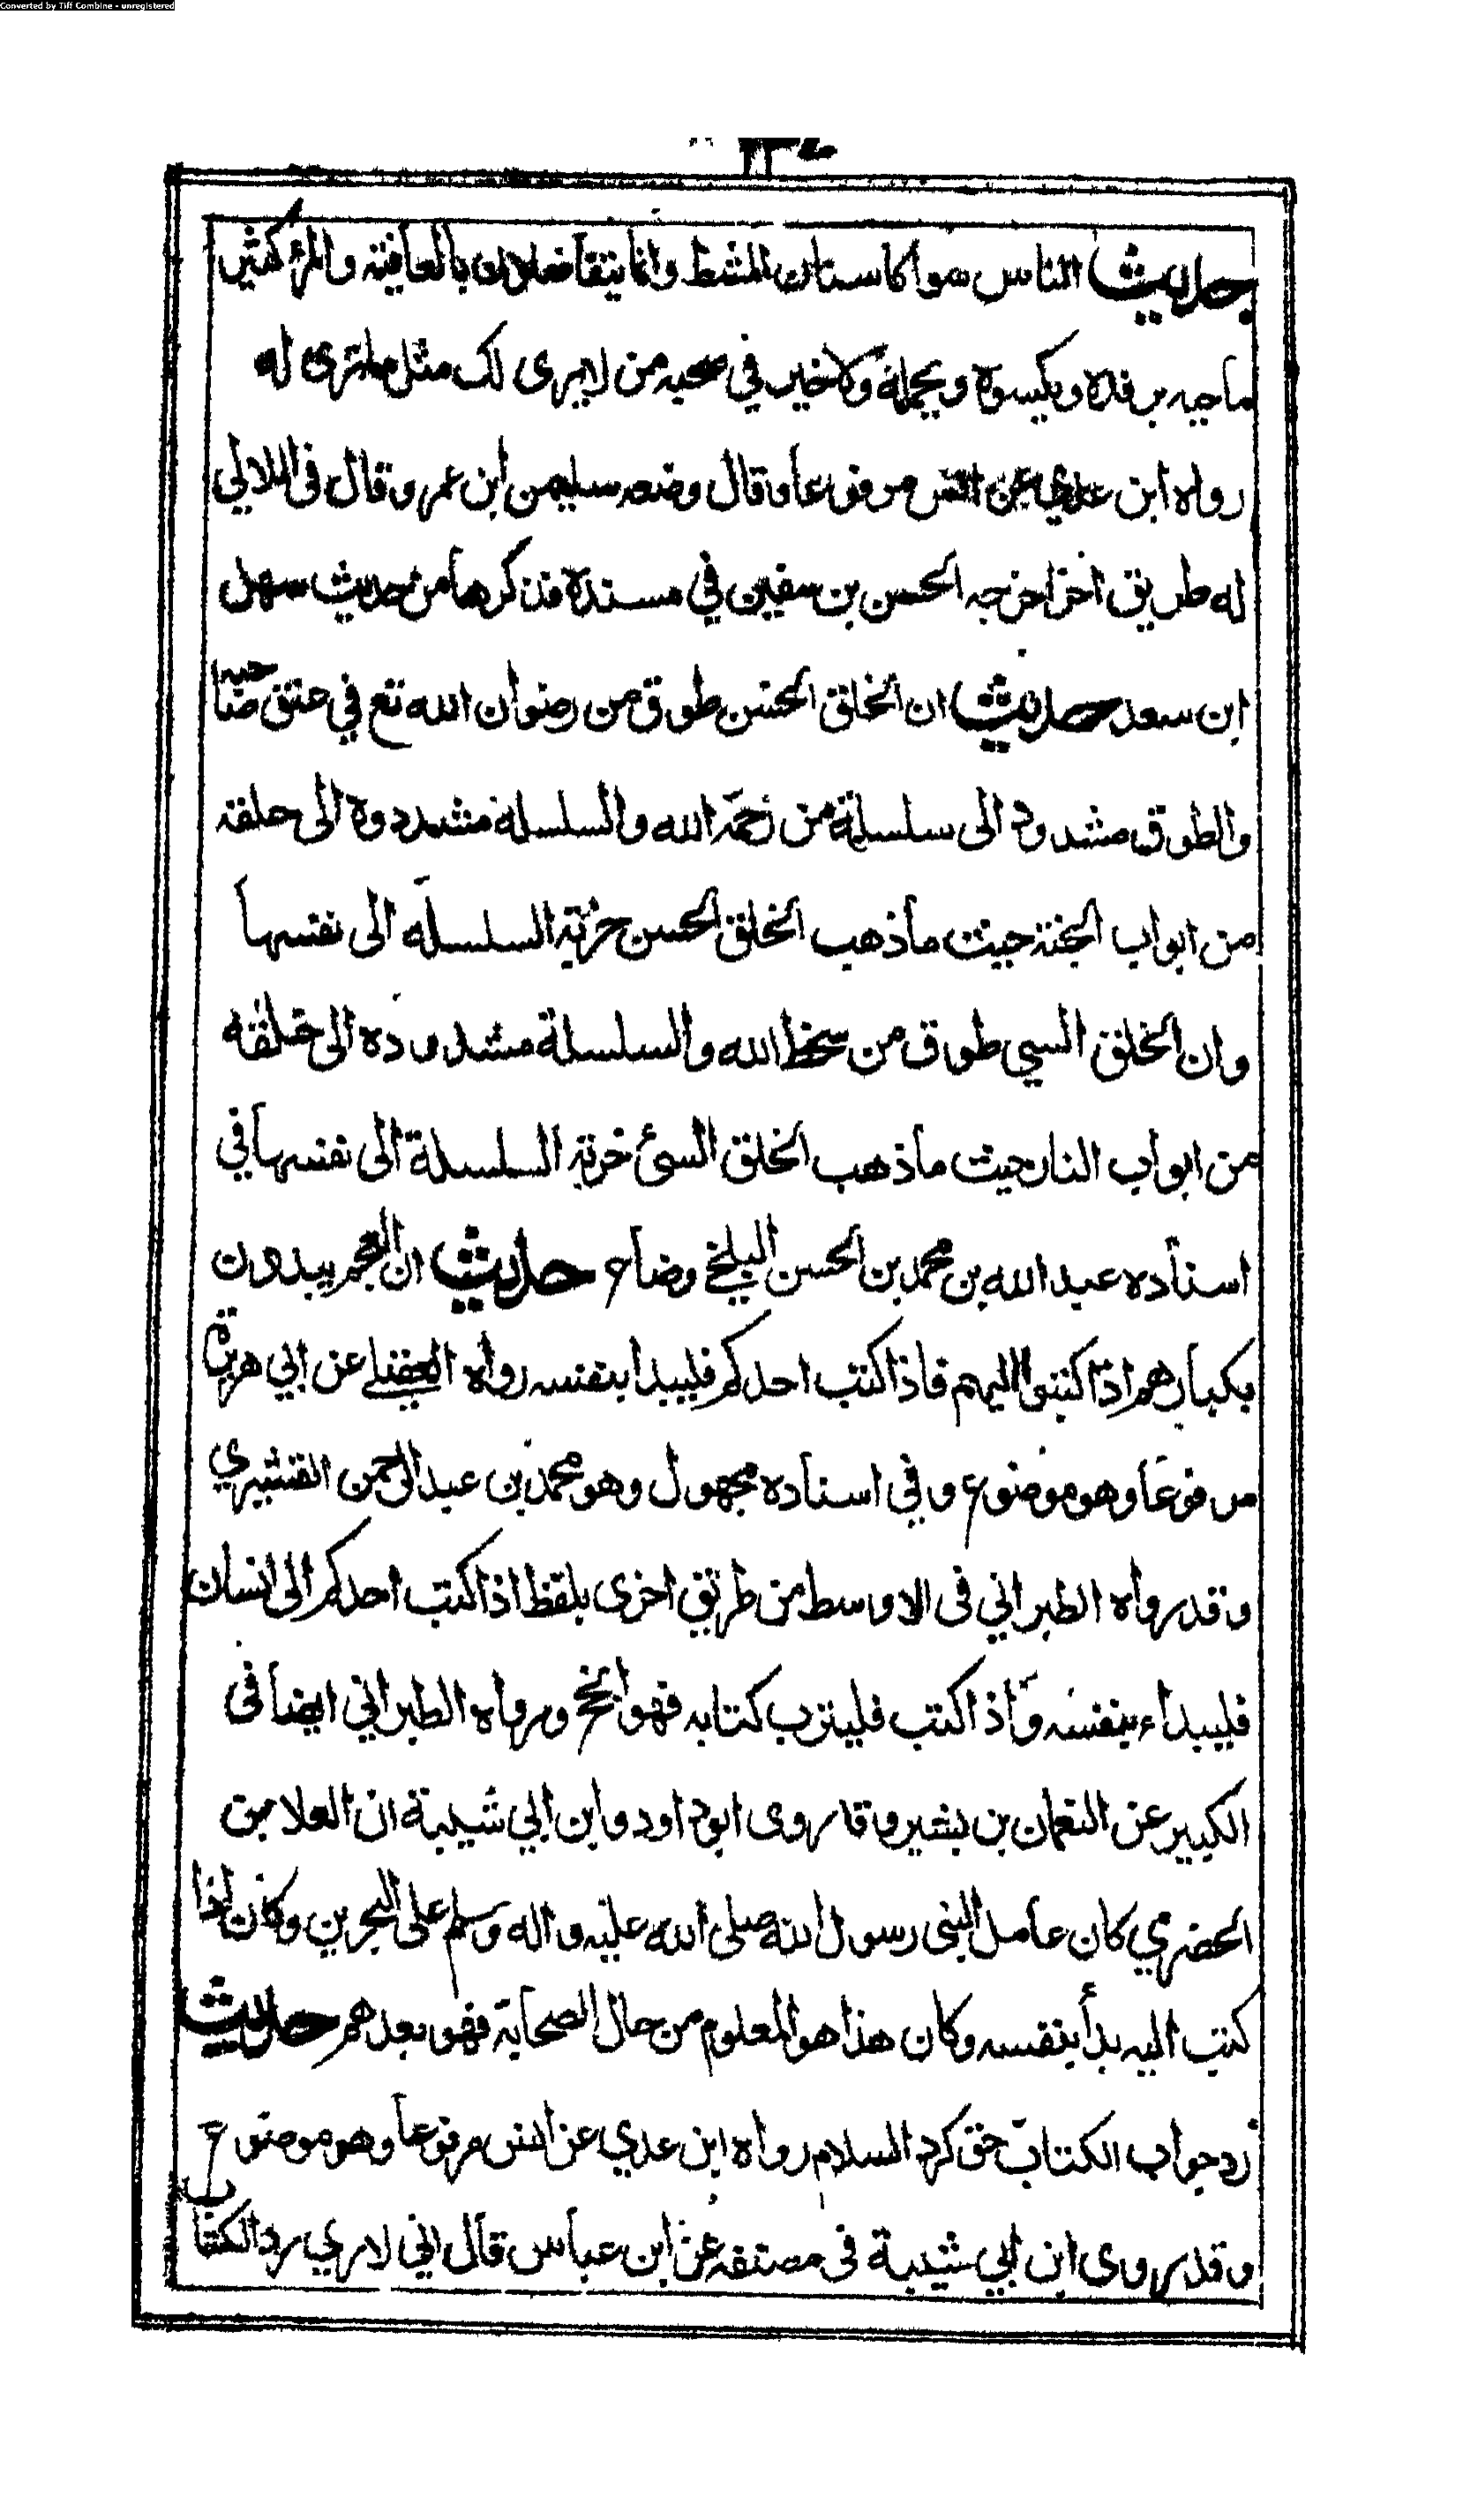 Converted by Tiff Combine - unregistered
حديث الناس سوا كاسنان المشط وانما يتفاضلون بالعافية والمرء كثير
باخيه يرفده ويكسوه ويحمله ولا خير في صحبه من لا يرى لك مثل ما ترى له
رواه ابن عدي عن انس مرفوعا وقال وضعه سليمن ابن عمر وقال فى اللالي
له طريق اخر اخرجه الحسن بن سفين في مسنده فذكرها من حديث سهل
ابن سعد حديث ان الخلق الحسن طوق من رضوان الله تع في عنق صاحبه
والطوق مشدود الى سلسلة من رحمة الله والسلسلة مشدودة الى حلقة
من ابواب الجنة حيث ما ذهب الخلق الحسن جرته السلسلة الى نفسها
وان الخلق السيى طوق من سخط الله والسلسلة مشدوده الى حلقه
من ابواب النار حيث ما ذهب الخلق السئ جرته السلسلة الى نفسها في
اسناده عبد الله بن محمد بن الحسن البلخي وضاع حديث ان العجم يبدون
بكبارهم اذا كتبوا اليهم فاذا كتب احدكم فليبدا بنفسه رواه العقيلي عن ابي هريرة
مرفوعا وهو موضوع وفي اسناده مجهول وهو محمد بن عبد الرحمن القشيري
وقد رواه الطبراني فى الاوسط من طريق اخرى بلفظ اذا كتب احدكم الى انسان
فليبداء بنفسه واذا كتب فليترب كتابه فهو انجح ورواه الطبراني ايضا فى
الكبير عن النعمان بن بشير وقد روى ابو داود وابن ابي شيبة ان العلا بن
الحضرمي كان عامل النبى رسول الله صلى الله عليه واله وسلم على البحرين وكان اذا
كتب اليه بدأ بنفسه وكان هذا هو المعلوم من حال الصحابة فهو بعدهم حديث
رد جواب الكتاب حق كرد السلام رواه ابن عدي عن انس مرفوعا وهو موضوع
وقد روى ابن ابي شيبة فى مصنفه عن ابن عباس قال اني لارى رد الكتاب